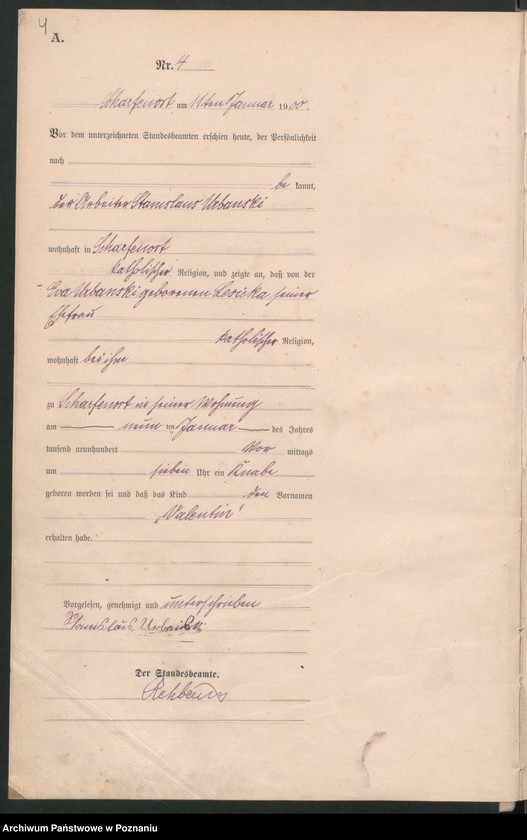 4
A.
Nr. 4
Scharfenort am 11ten Januar 1900.
Vor dem unterzeichneten Standesbeamten erschien heute, der Persönlichkeit
nach
be kannt,
der Arbeiter Stanislaus Urbanski
wohnhaft in Scharfenort
katholischer Religion, und zeigte an, daß von der
Eva Urbanski geborenen Lesicka, seiner
Ehefrau
katholischer Religion,
wohnhaft bei ihm
zu Scharfenort in seiner Wohnung
am neun ten Januar des Jahres
tausend neunhundert Vor mittags
um sieben Uhr ein Knabe
geboren worden sei und daß das Kind den Vornamen
„Valentin"
erhalten habe.
Vorgelesen, genehmigt und unterschrieben
Stanislaus Urbanski
Der Standesbeamte.
Archiwum Państwowe w Poznaniu